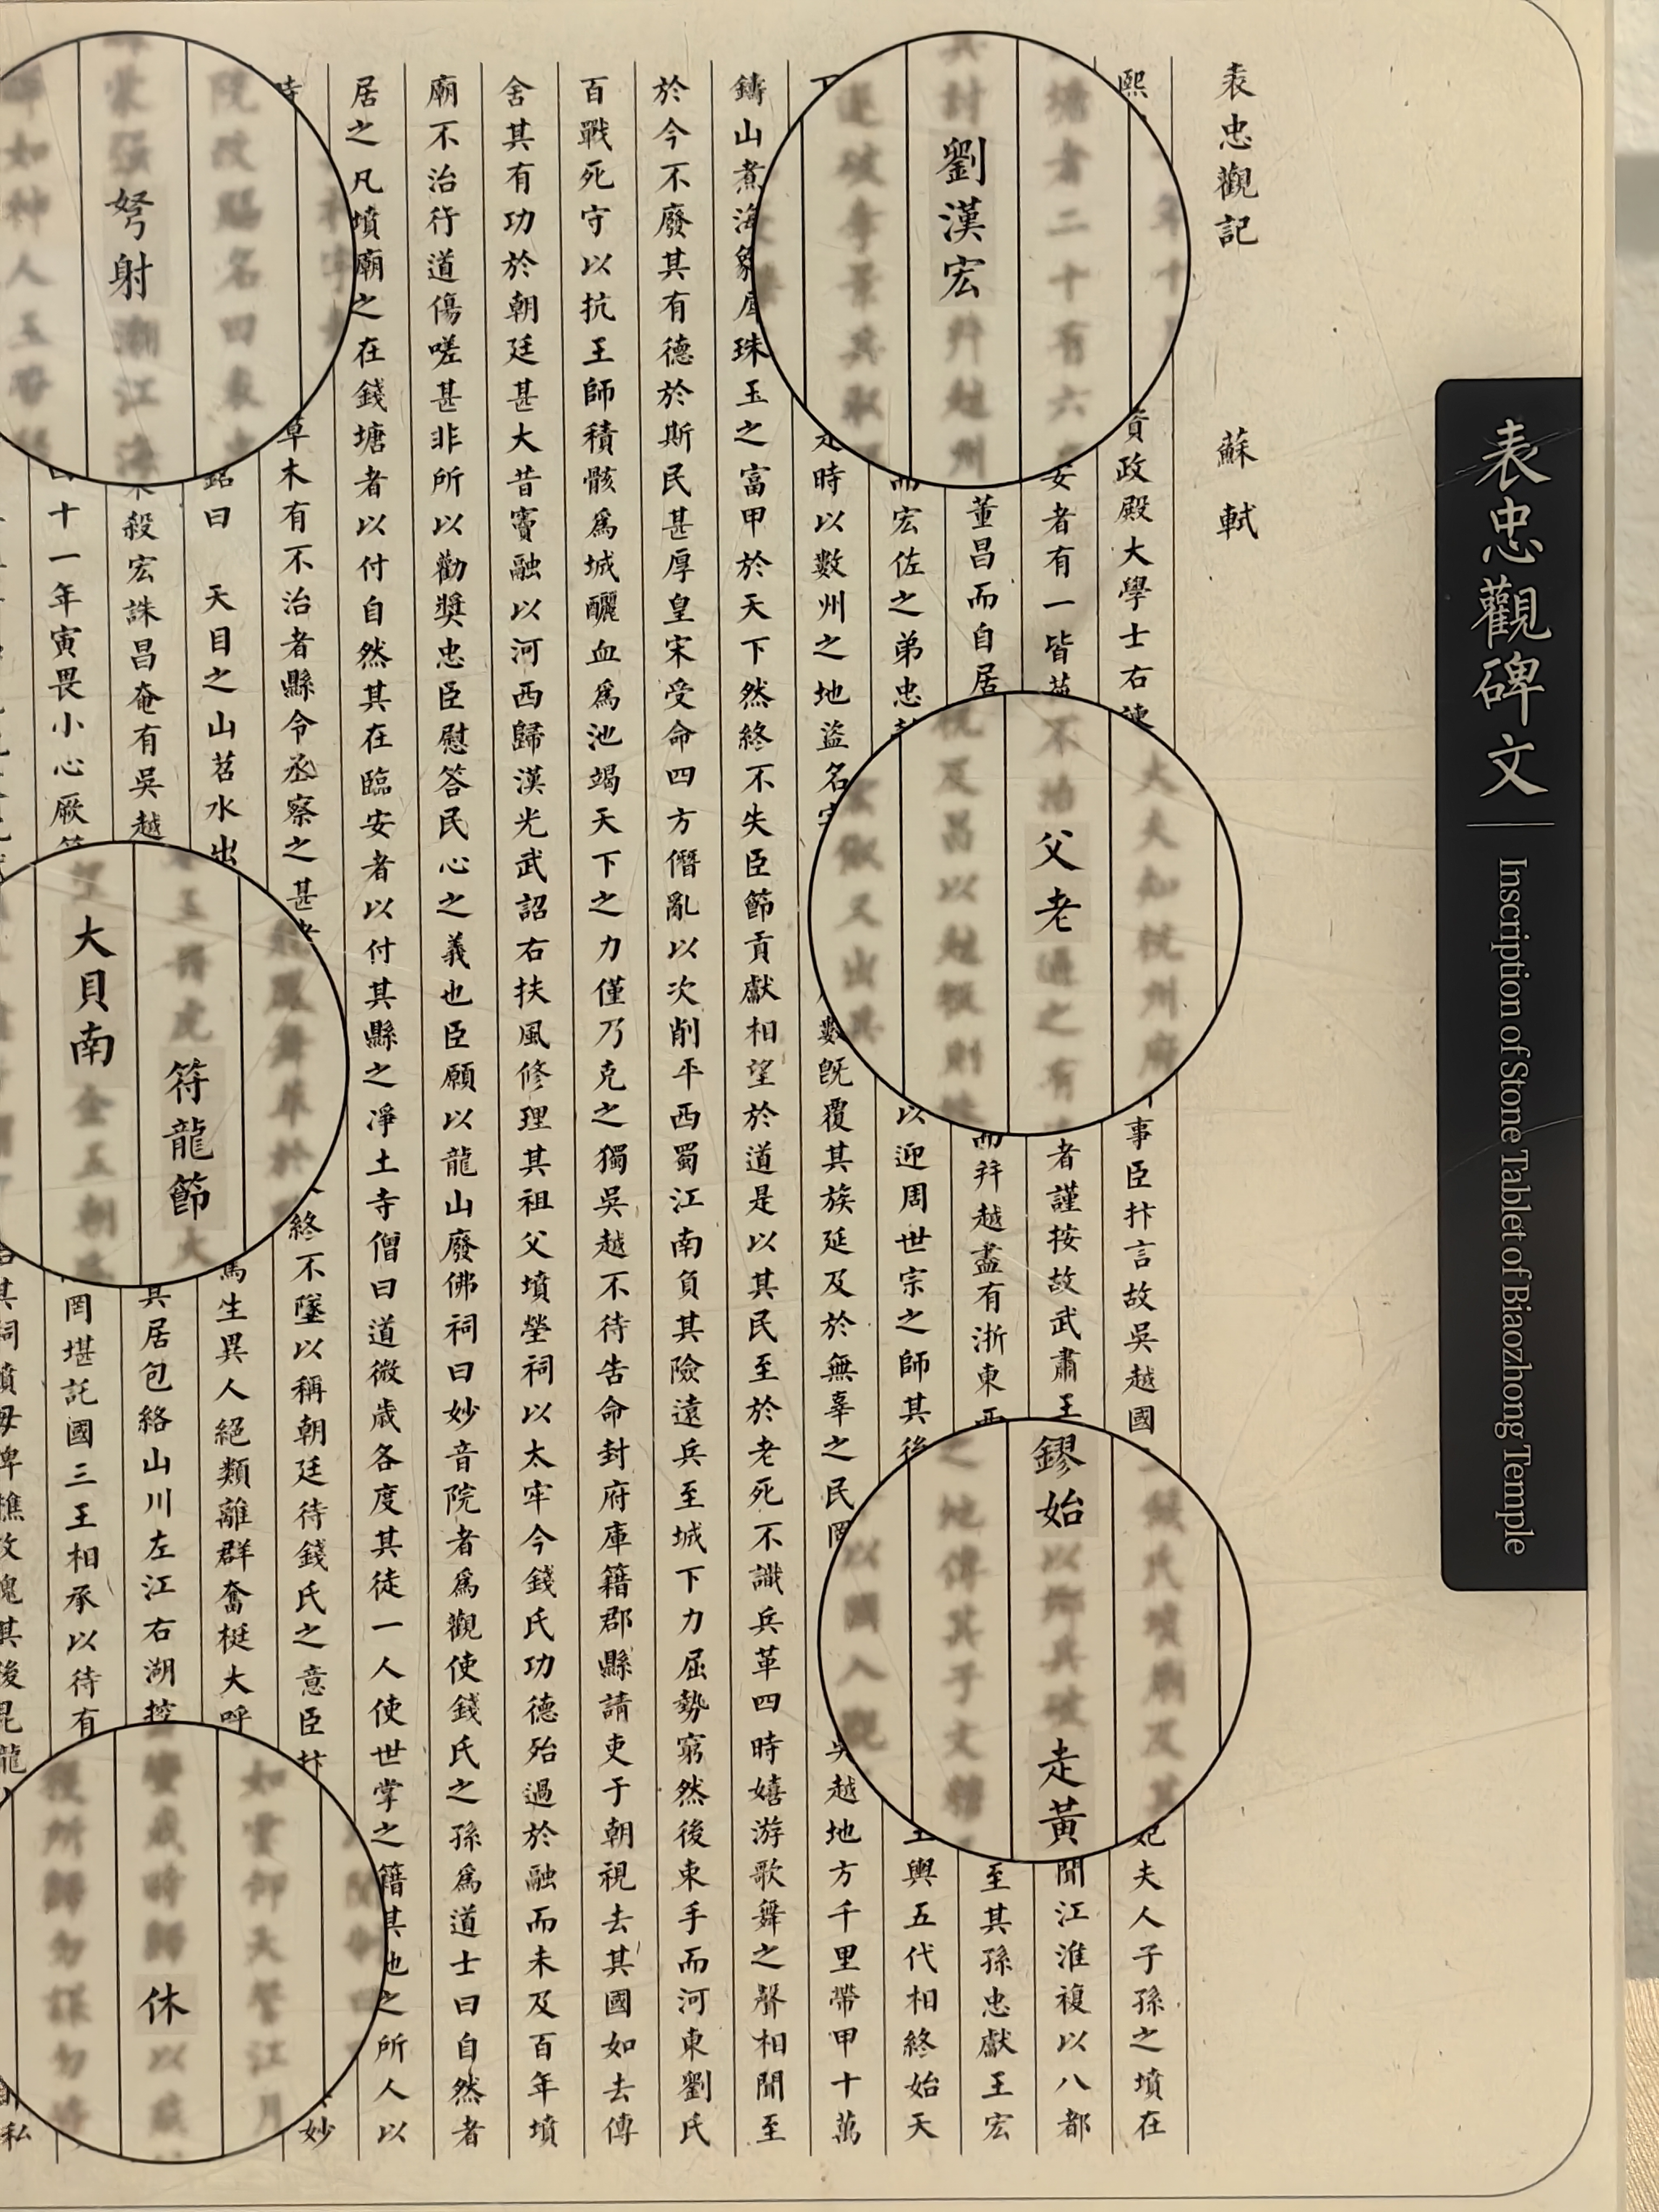 表忠觀碑文
Inscription of Stone Tablet of Biaozhong Temple
表忠觀記 蘇軾
熙 年十 資政殿大學士右諫 大夫知杭州 事臣抃言故吳越國 氏墳廟及其妃夫人子孫之墳在
塘者二十有六 安者有一皆蕪 不治父老過之有 者謹按故武肅王鏐始以鄉兵破走黃 聞江淮複以八都
兵討劉漢宏幷越州 董昌而自居杭及昌以越叛則誅 而幷越盡有浙東西之地傳其子文穆 至其孫忠獻王宏
遂破李景兵取 而宏佐之弟忠 俶又出兵以迎周世宗之師其後以國入覲 王與五代相終始天
下 是時以數州之地盜名字 數既覆其族延及於無辜之民罔 吳越地方千里帶甲十萬
鑄山煮海象犀珠玉之富甲於天下然終不失臣節貢獻相望於道是以其民至於老死不識兵革四時嬉游歌舞之聲相聞至
於今不廢其有德於斯民甚厚皇宋受命四方僭亂以次削平西蜀江南負其險遠兵至城下力屈勢窮然後束手而河東劉氏
百戰死守以抗王師積骸爲城釃血爲池竭天下之力僅乃克之獨吳越不待告命封府庫籍郡縣請吏于朝視去其國如去傳
舍其有功於朝廷甚大昔竇融以河西歸漢光武詔右扶風修理其祖父墳塋祠以太牢今錢氏功德殆過於融而未及百年墳
廟不治行道傷嗟甚非所以勸奬忠臣慰答民心之義也臣願以龍山廢佛祠曰妙音院者爲觀使錢氏之孫爲道士曰自然者
居之凡墳廟之在錢塘者以付自然其在臨安者以付其縣之淨土寺僧曰道微歲各度其徒一人使世掌之籍其地之所入以
時 草木有不治者縣令丞察之甚 終不墜以稱朝廷待錢氏之意臣抃 妙
院改賜名曰表忠 銘曰 天目之山苕水出 飛鳳舞萃於 篤生異人絕類離群奮梃大呼 如雲仰天誓江月
弩射潮江海 殺宏誅昌奄有吳越 玉帶虎符龍節 大 其居包絡山川左江右湖控 蠻歲時歸休以
如神人玉帶 十一年寅畏小心厥篚 大貝南金五朝 罔堪託國三王相承以待有 獲所歸